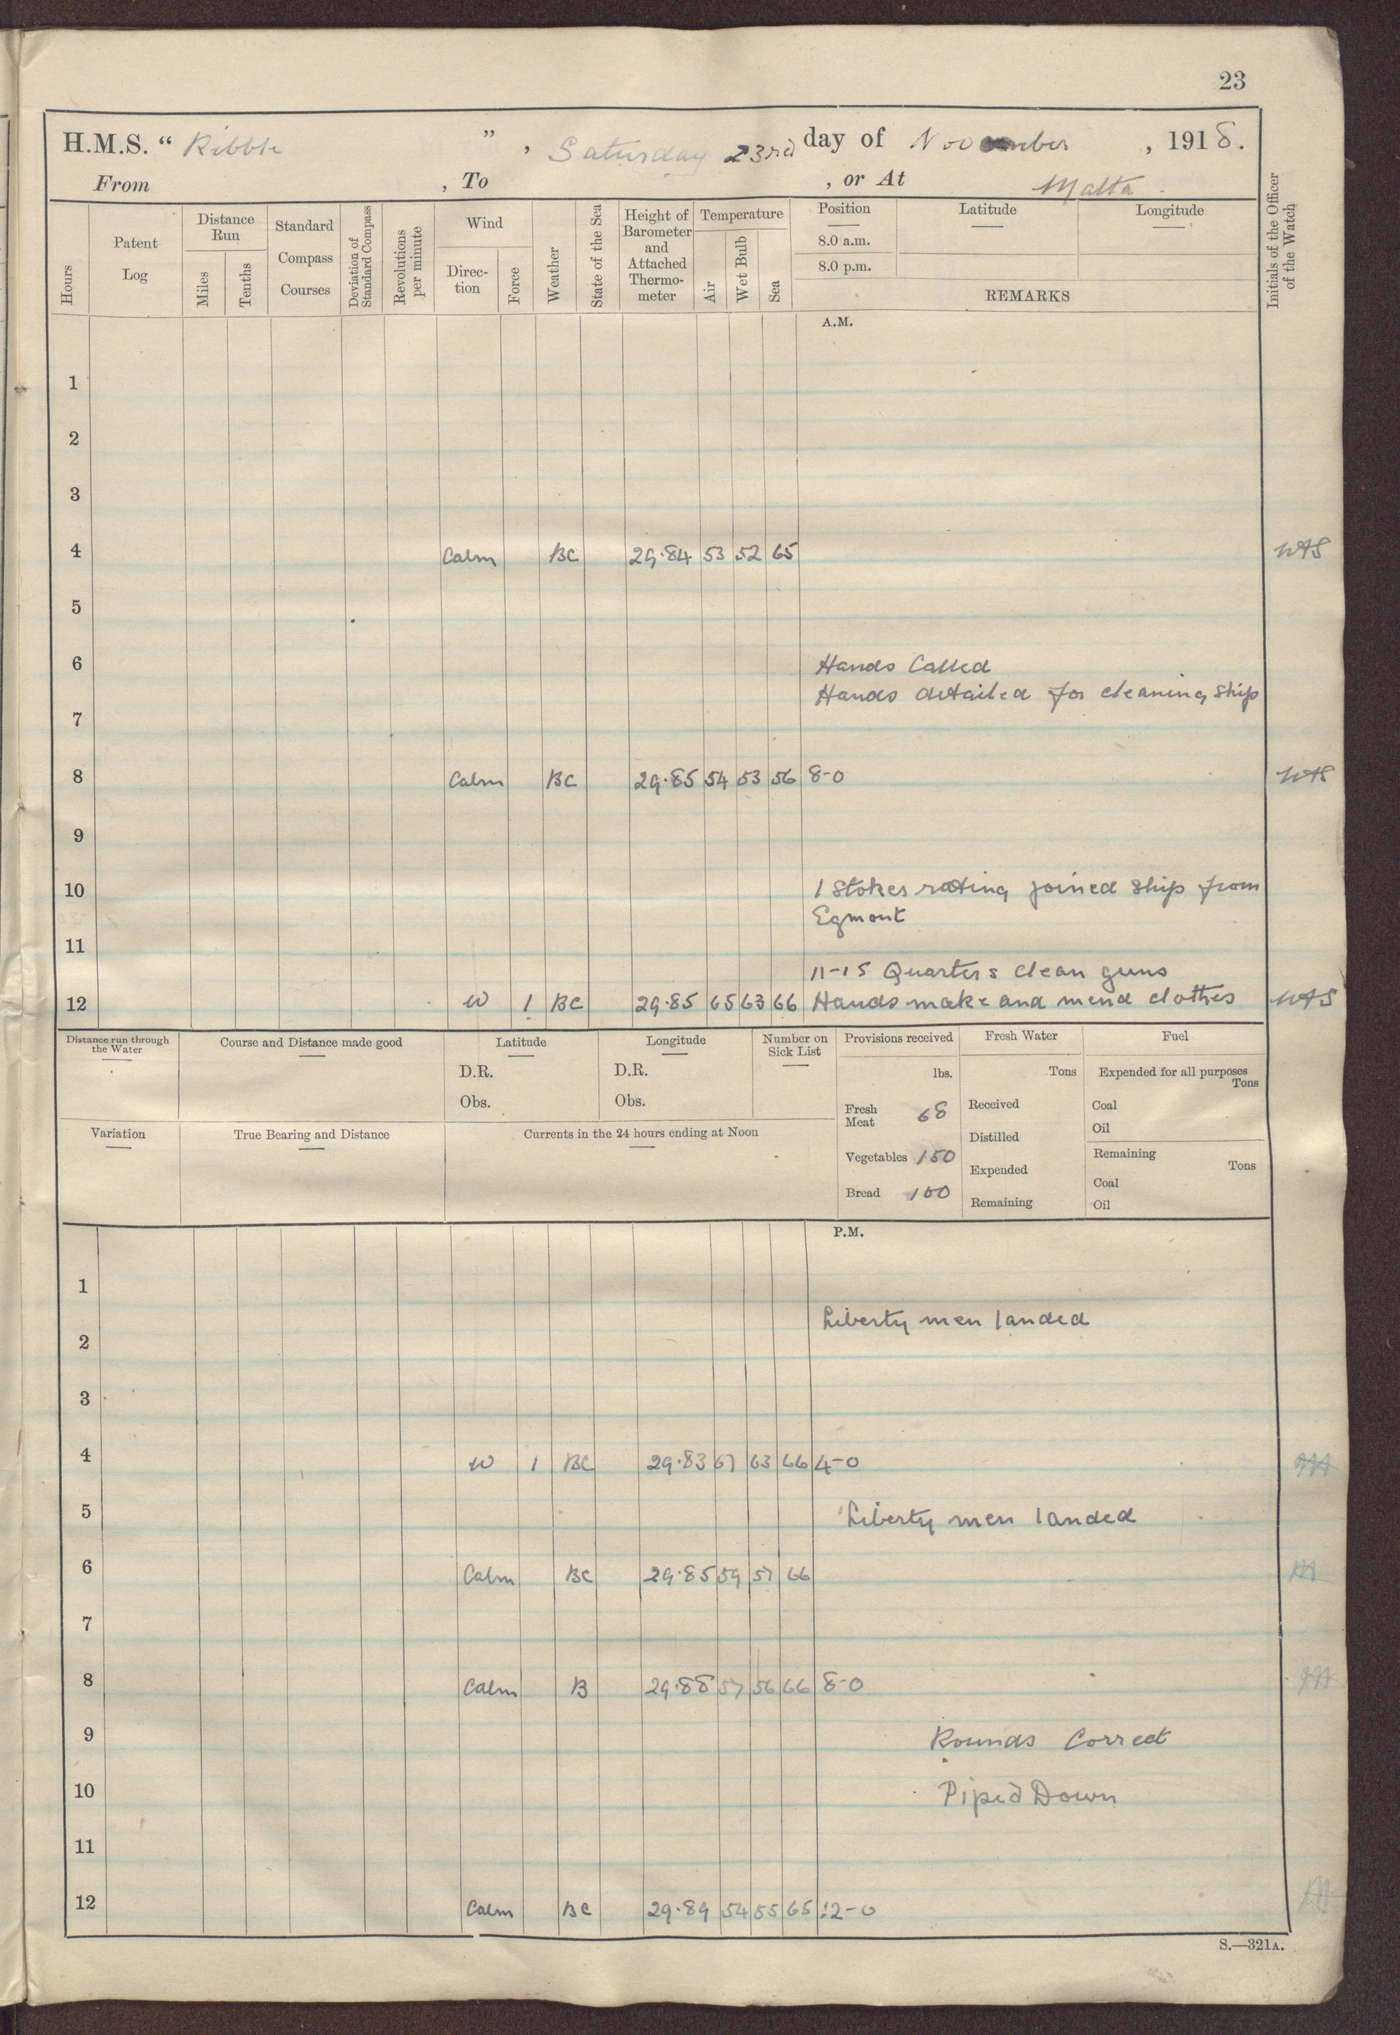 23
H.M.S. “ Ribble ” , Saturday 23rd day of November , 1918.
From , To , or At Malta
Hours
Patent Log
Distance Run
Miles
Tenths
Standard Compass Courses
Deviation of Standard Compass
Revolutions per minute
Wind
Direc-tion
Force
Weather
State of the Sea
Height of Barometer and Attached Thermo-meter
Temperature
Air
Wet Bulb
Sea
Position
8.0 a.m.
8.0 p.m.
Latitude
Longitude
REMARKS
Initials of the Officer of the Watch
A.M.
1
2
3
4 Calm BC 29.84 53 52 65 WAS
5
6 Hands Called
Hands detailed for cleaning ship
7
8 Calm BC 29.85 54 53 56 8-0 WAS
9
10 1 Stoker rating joined ship from
Egmont
11
11-15 Quarters clean guns
12 W 1 BC 29.85 65 63 66 Hands make and mend clothes WAS
Distance run through the Water
Course and Distance made good
Latitude
D.R.
Obs.
Longitude
D.R.
Obs.
Number on Sick List
Provisions received
lbs.
Fresh Meat 68
Vegetables 150
Bread 100
Fresh Water
Tons
Received
Distilled
Expended
Remaining
Fuel
Expended for all purposes
Tons
Coal
Oil
Remaining
Tons
Coal
Oil
Variation
True Bearing and Distance
Currents in the 24 hours ending at Noon
P.M.
1
Liberty men landed
2
3
4 W 1 BC 29.83 67 63 66 4-0
5 Liberty men landed
6 Calm BC 29.85 59 57 66
7
8 Calm B 29.88 57 56 66 8-0
9 Rounds Correct
10 Piped Down
11
12 Calm BC 29.89 54 55 65 12-0
S.—321A.